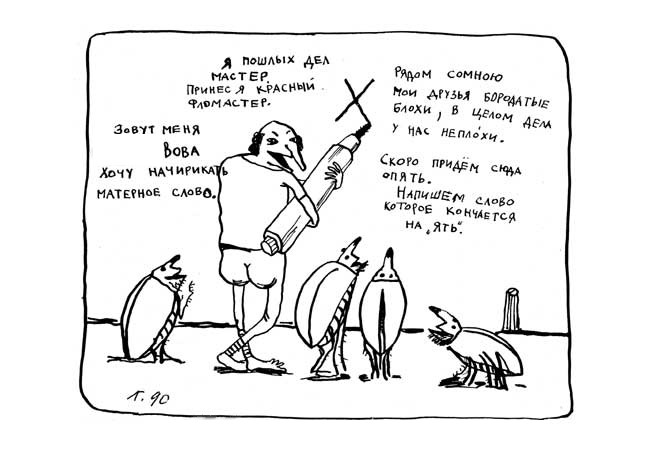 Я ПОШЛЫХ ДЕЛ
МАСТЕР.
ПРИНЕС Я КРАСНЫЙ
ФЛОМАСТЕР.
ЗОВУТ МЕНЯ
ВОВА
ХОЧУ НАЧИРИКАТЬ
МАТЕРНОЕ СЛОВО.
Х
РЯДОМ СОМНОЮ
МОИ ДРУЗЬЯ БОРОДАТЫЕ
БЛОХИ, В ЦЕЛОМ ДЕЛА
У НАС НЕПЛО́ХИ.
СКОРО ПРИДЁМ СЮДА
ОПЯТЬ.
НАПИШЕМ СЛОВО
КОТОРОЕ КОНЧАЕТСЯ
НА „ЯТЬ".
Г. 90